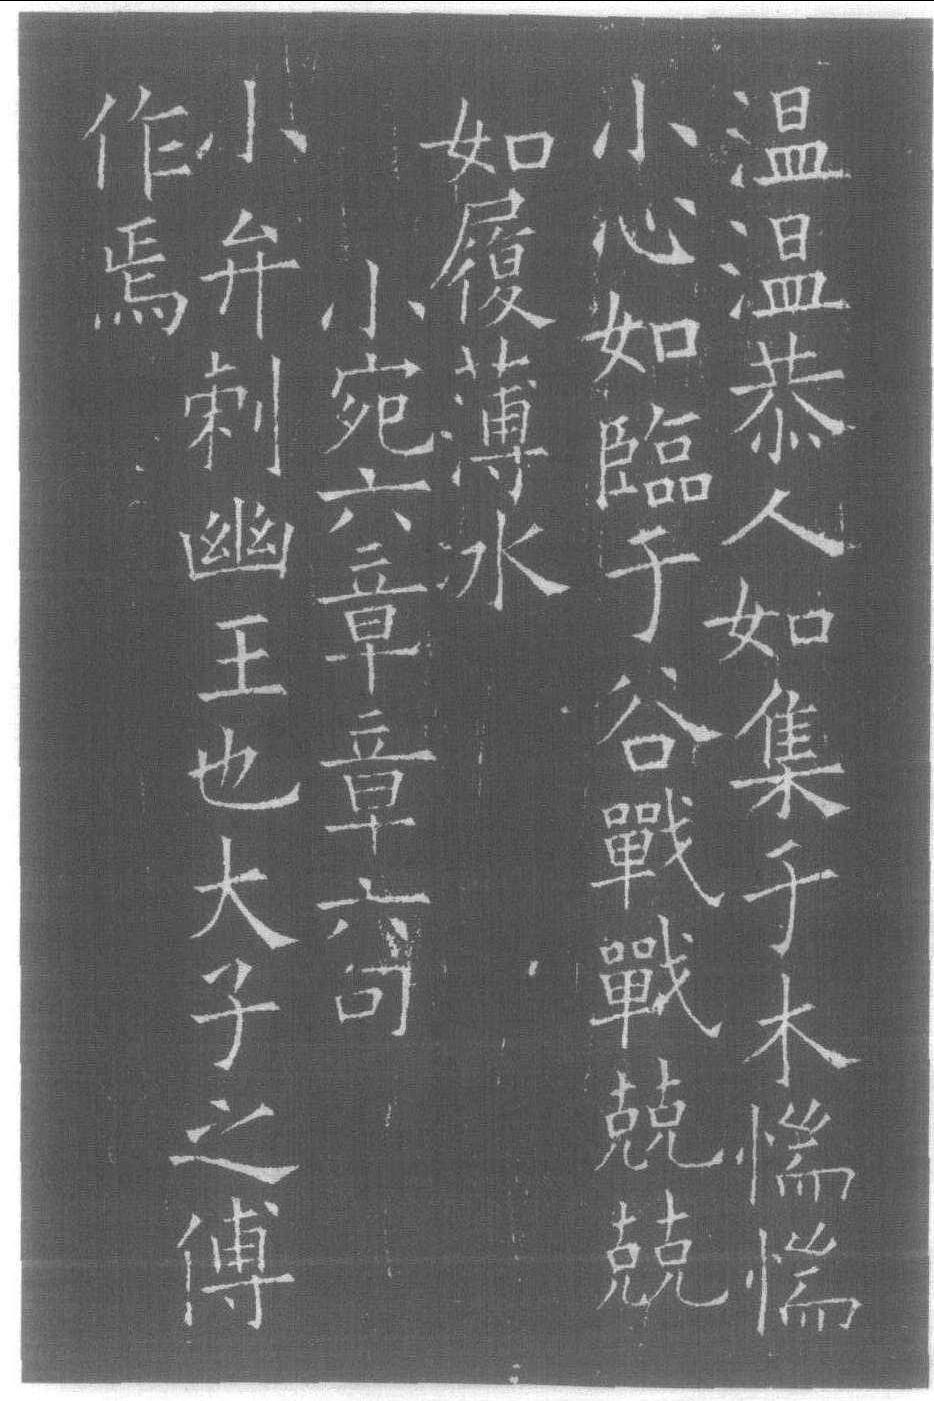 温温恭人如集于木惴惴
小心如臨于谷戰戰兢兢
如履薄冰
小宛六章章六句
小弁刺幽王也大子之傅
作焉